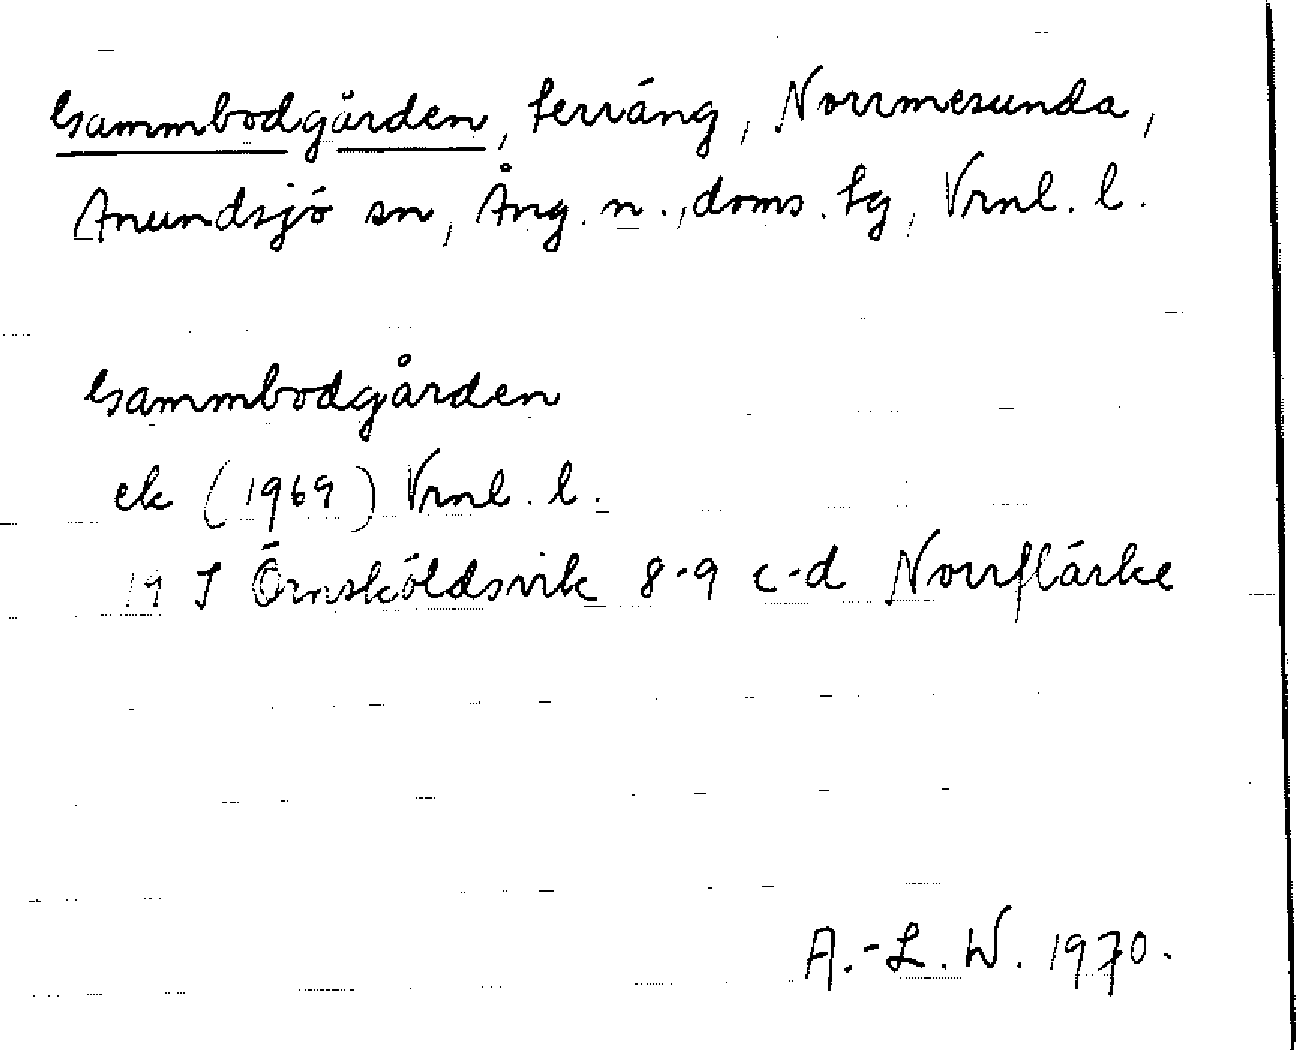 Gammbodgården, terräng, Norrmesunda,
Anundsjö sn, Ång. n., doms. tg, Vrnl. l.
Gammbodgården
ek (1969) Vrnl. l.
19 I Örnsköldsvik 8-9 c-d Norrflärke
A.-L. W. 1970.